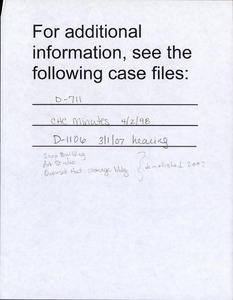 For additional
information, see the
following case files:
D-711
CHC Minutes 4/2/98
D-1106 3/1/07 hearing
Shop Building
Art Studio
Quonset Hut storage bldg
demolished